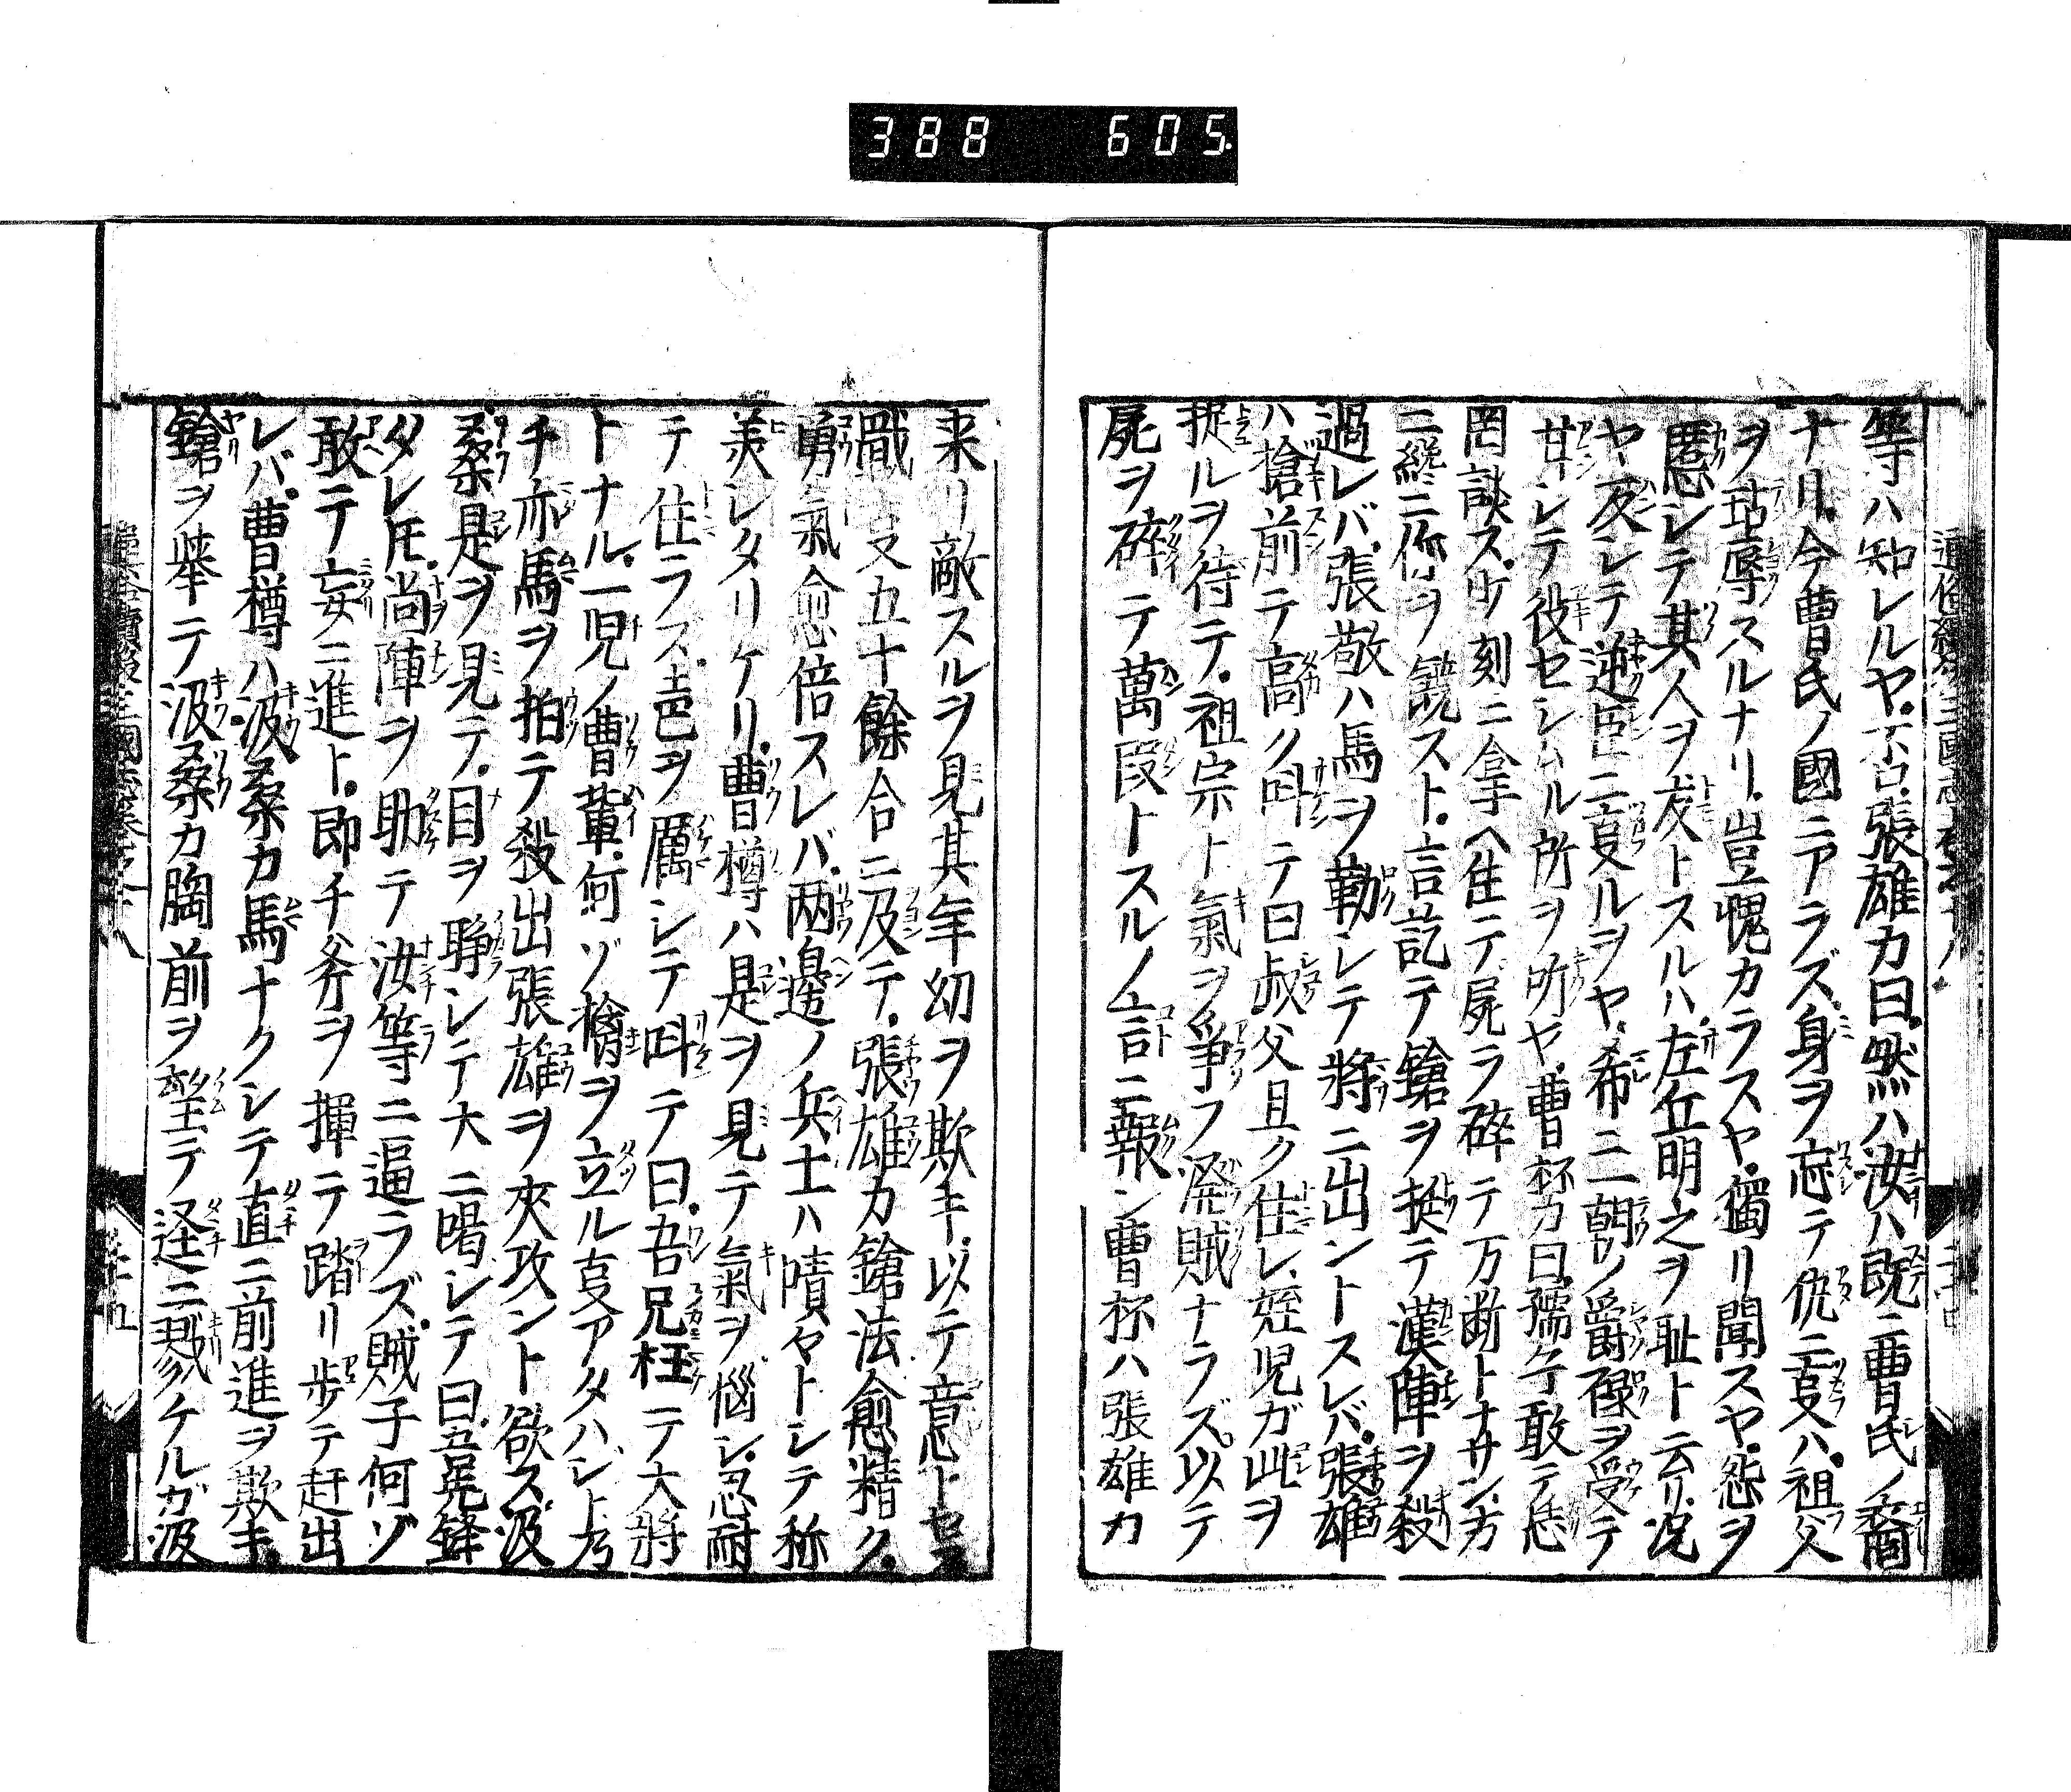 388 605
等ハ知レルヤ否張雄カ曰然ハ汝ハ既ニ曹氏ノ裔
ナリ今曹氏ノ國ニアラズ身ヲ忘テ仇ニ事ハ祖父
ヲ玷辱スルナリ豈愧カラスヤ獨リ聞スヤ怨ヲ
匿シテ其人ヲ友トスルハ左丘明之ヲ耻ト云リ况
ヤ反シテ逆臣ニ事ルヲヤ希ニ一朝ノ爵祿ヲ受テ
甘シテ役セシムル所ヲ听ヤ曹杯カ曰孺子敢テ恁
罔談ス少刻ニ拿ヘ住テ屍ヲ碎テ万断トナサン方
ニ纔ニ你ヲ饒スト言訖テ鎗ヲ挺テ漢陣ヲ殺
過レバ張敬ハ馬ヲ勒シテ將ニ出ントスレバ張雄
ハ搶前テ高ク呌テ曰叔父且ク住レ姪児ガ此ヲ
捉ルヲ待テ祖宗ト氣ヲ爭フ潑賊ナラズ以テ
屍ヲ碎テ萬段トスルノ言ニ報ン曹杯ハ張雄カ
来リ敵スルヲ見其年幼ヲ欺キ以テ意トセズ
戰支五十餘合ニ及テ張雄カ鎗法愈精ク
勇氣愈倍スレバ两邊ノ兵士ハ嘖々トシテ称
羡シタリケリ曹樽ハ是ヲ見テ氣ヲ惱シ忍耐
テ住ラス声ヲ厲シテ呌テ曰吾兄枉テ大將
トナル一児ノ曹輩何ゾ擒ヲ立ル事アタハジト乃
チ亦馬ヲ拍テ殺出張雄ヲ夾攻ント欲ス汲
桑是ヲ見テ目ヲ睜シテ大ニ喝シテ曰吾冕鋒
タレ𪜈尚陣ヲ助テ汝等ニ逼ラズ賊子何ゾ
敢テ妄ニ進ト即チ斧ヲ揮テ踏リ歩テ赶出
レバ曹樽ハ汲桑カ馬ナクシテ直ニ前進ヲ欺キ
鎗ヲ挙テ汲桑カ胸前ヲ望テ逕ニ戳ケルガ汲